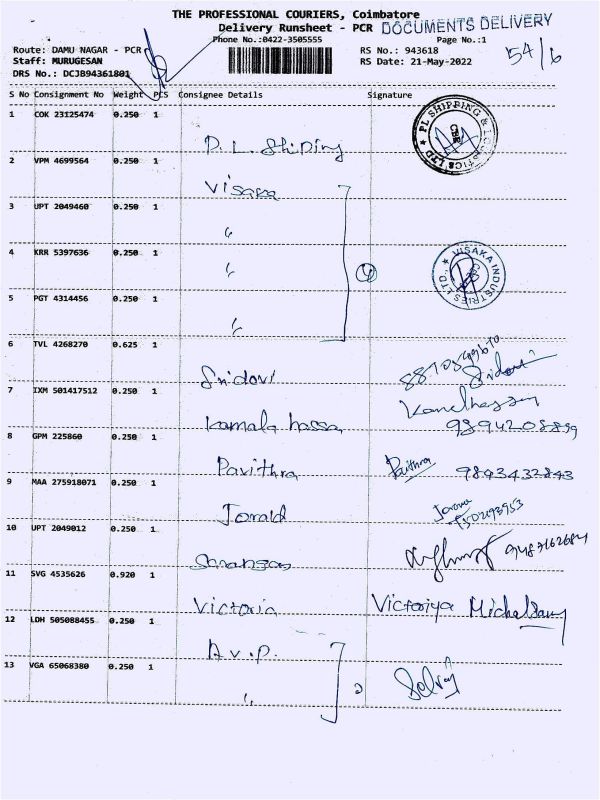 THE PROFESSIONAL COURIERS, Coimbatore
Delivery Runsheet - PCR DOCUMENTS DELIVERY
Phone No.:0422-3505555 Page No.:1
Route: DAMU NAGAR - PCR RS No.: 943618 54/6
Staff: MURUGESAN RS Date: 21-May-2022
DRS No.: DCJB94361801
S No Consignment No Weight PCS Consignee Details Signature
1 COK 23125474 0.250 1
P.L. Shiping PL SHIPPING & LOGISTICS LTD CBE
2 VPM 4699564 0.250 1
Visaka
3 UPT 2049460 0.250 1
"
4 KRR 5397636 0.250 1
" 4 VISAKA INDUSTRIES LTD.,
5 PGT 4314456 0.250 1
"
6 TVL 4268270 0.625 1
Sridevi Sridevi
7 IXM 501417512 0.250 1
Kamala hassa 9894208899
8 GPM 225860 0.250 1
Pavithra Pavithra 9843432843
9 MAA 275918071 0.250 1
Jorald
10 UPT 2049012 0.250 1
Sarangan
11 SVG 4535626 0.920 1
Victoria Victoriya Michelsamy
12 LDH 505088455 0.250 1
A.V.P.
13 VGA 65068380 0.250 1
" 2 Selvaj